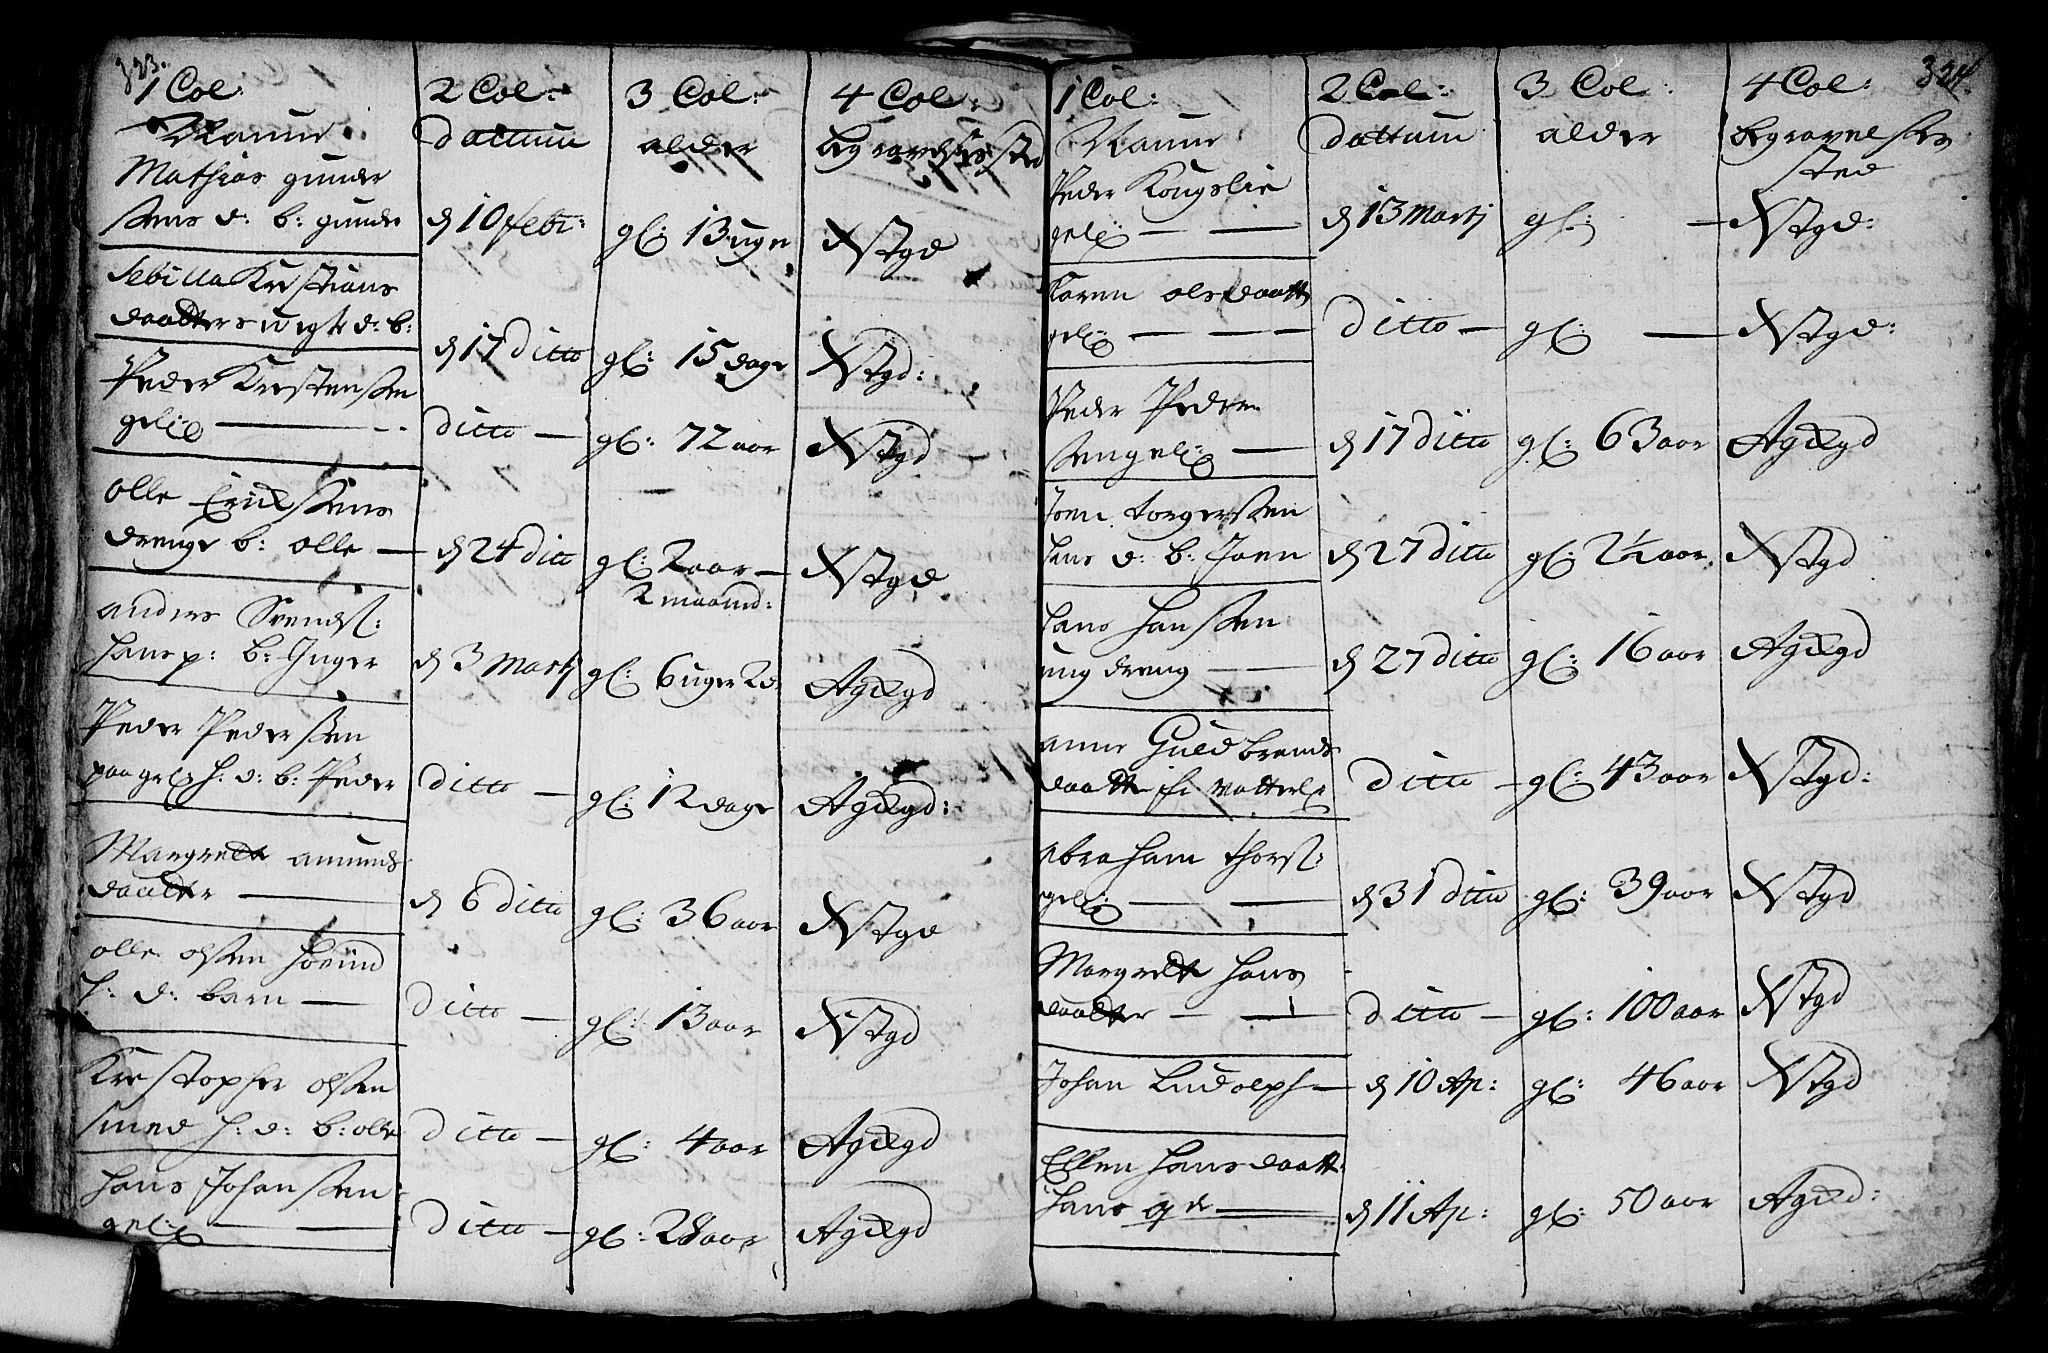 323.
1 Col:
Naune
2 Col:
dattum
3 Col:
alder
4 Col:
Begravelses sted
Mathias gunder
sens d: b: gunder
d 10 febr:
gl: 13 uger
Xstgd
Sebilla Krestians
daatter d: b:
d 17 ditto
gl: 15 dage
Xstgd:
Peder Krestensen
gel:
ditto
gl: 72 aar
Xstgd
olle Erichsens
drenge b: olle
d 24 ditto
gl: 2 aar
2 maand:
Xstgd
anders Svends:
hans p: b: Inger
d 3 Martj
gl: 6 uger 2 d:
Agkgd
Peder Pedersen
h: d: b: Peder
ditto
gl: 12 dage
Agkgd:
Margrette amunds
daatter
d 6 ditto
gl: 36 aar
Xstgd
olle olsen
h: d: barn
ditto
gl: 13 aar
Xstgd
Krestopher olsen
smed h: d: b: olle
ditto
gl: 4 aar
Agkgd
hans Johansen
gel:
ditto
gl: 28 aar
Agkgd
324.
1 Col:
Naune
2 Col:
dattum
3 Col:
alder
4 Col:
Begravelses
sted
Peder Kongslie
gel:
d 13 Martj
gl:
Xstgd:
Karen olsdaatter
gel:
ditto
gl:
Xstgd:
Peder Peder
sen gel:
d 17 ditto
gl: 63 aar
Agkgd
Joen torgersen
hans d: b: Joen
d 27 ditto
gl: 2½ aar
Xstgd
hans hansen
ung dreng
d 27 ditto
gl: 16 aar
Agkgd
anne Guldbrends
daatter
ditto
gl: 43 aar
Xstgd:
Abraham thors:
gel:
d 31 ditto
gl: 39 aar
Xstgd
Margrette hans
daatter
ditto
gl: 100 aar
Xstgd
Johan Ludolph
d 10 Ap:
gl: 46 aar
Xstgd
Ellen hansdaatt:
hans
d 11 Ap:
gl: 50 aar
Agkd: